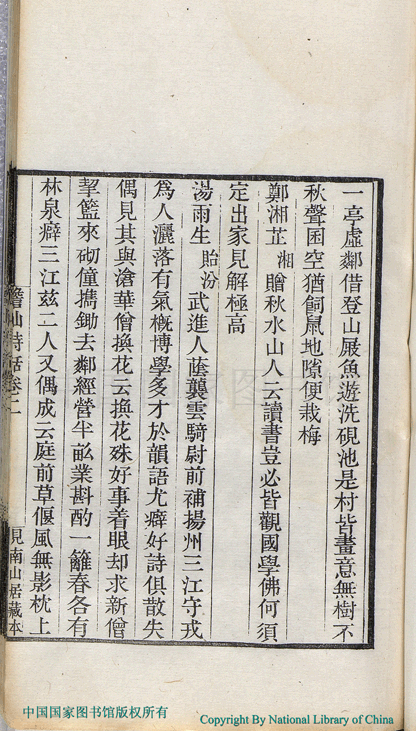 一亭虛鄰借登山屐魚遊洗硯池是村皆畫意無樹不
秋聲囷空猶飼鼠地隙便栽梅
鄭湘芷湘贈秋水山人云讀書豈必皆觀國學佛何須
定出家見解極高
湯雨生貽汾武進人蔭襲雲騎尉前補揚州三江守戎
爲人灑落有氣槪博學多才於韻語尤癖好詩俱散失
偶見其與滄華僧換花云換花殊好事着眼却求新僧
挈籃來砌僮攜鋤去鄰經營半畝業斟酌一籬春各有
林泉癖三江玆二人又偶成云庭前草偃風無影枕上
詩話卷二
見南山居藏本
中国国家图书馆版权所有
Copyright By National Library of China